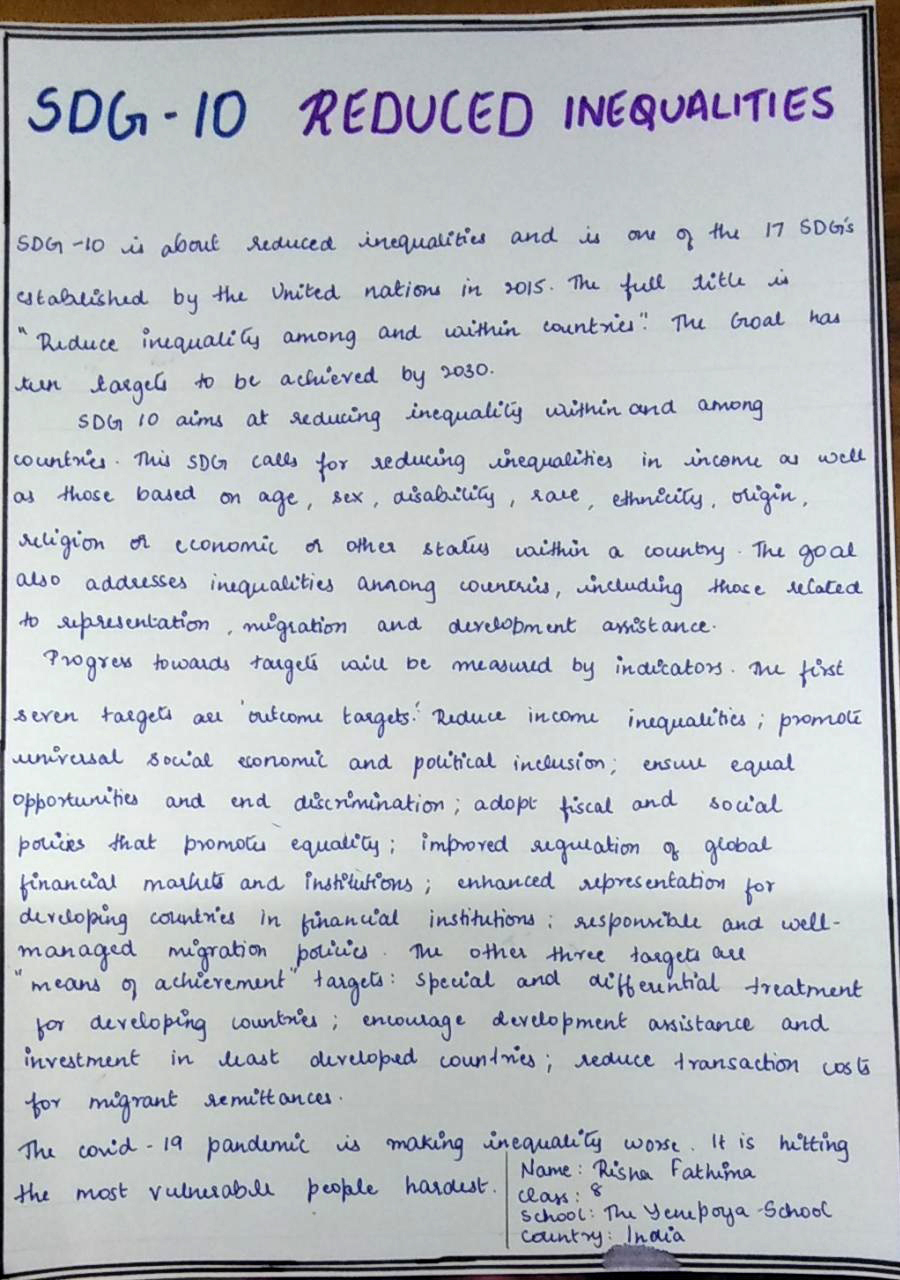 SDG-10 REDUCED INEQUALITIES
SDG-10 is about reduced inequalities and is one of the 17 SDG's
established by the United nations in 2015. The full title is
"Reduce inequality among and within countries". The Goal has
ten targets to be achieved by 2030.
SDG 10 aims at reducing inequality within and among
countries. This SDG calls for reducing inequalities in income as well
as those based on age, sex, disability, race, ethnicity, origin,
religion or economic or other status within a country. The goal
also addresses inequalities among countries, including those related
to representation, migration and development assistance.
Progress towards targets will be measured by indicators. The first
seven targets are 'outcome targets': Reduce income inequalities; promote
universal social economic and political inclusion; ensure equal
opportunities and end discrimination; adopt fiscal and social
policies that promotes equality; improved regulation of global
financial markets and institutions; enhanced representation for
developing countries in financial institutions; responsible and well-
managed migration policies. The other three targets are
"means of achievement" targets: Special and differential treatment
for developing countries; encourage development assistance and
investment in least developed countries; reduce transaction costs
for migrant remittances.
The covid-19 pandemic is making inequality worse. It is hitting
the most vulnerable people hardest.
Name: Risha Fathima
Class: 8
School: The Yenepoya School
Country: India